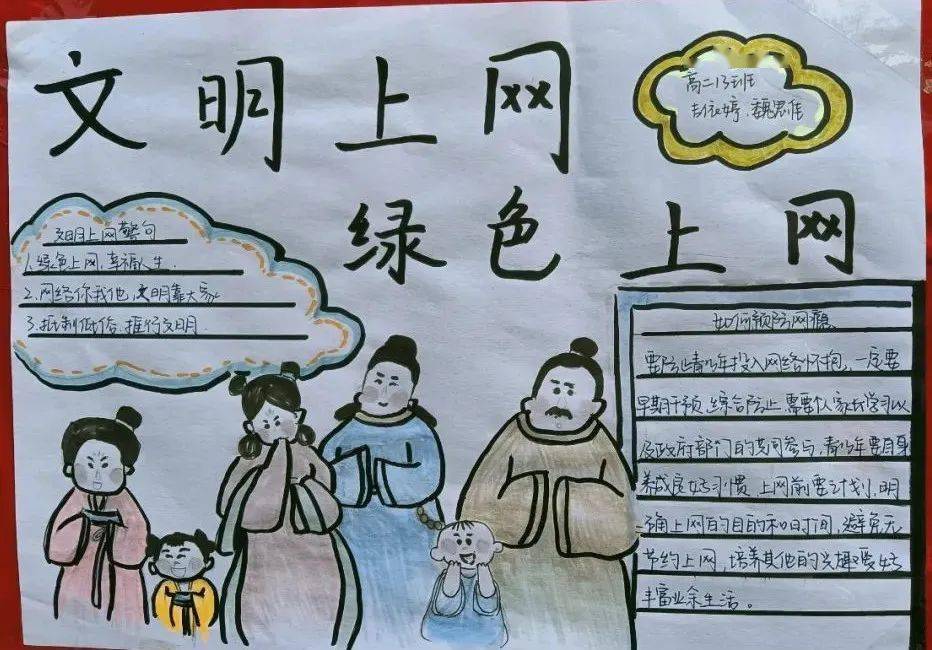 文明上网
高二13班
绿色上网
文明上网警句
1.绿色上网,幸福人生.
2.网络你我他,文明靠大家
3.抵制低俗,推行文明.
如何预防网瘾
要防止青少年投入网络怀抱,一定要
早期干预,综合防止,需要个人家长学习以
及政府部门的共同参与,青少年要自身
养成良好习惯,上网前要计划,明
确上网的目的和时间,避免无
节约上网,培养其他的兴趣爱好
丰富业余生活。